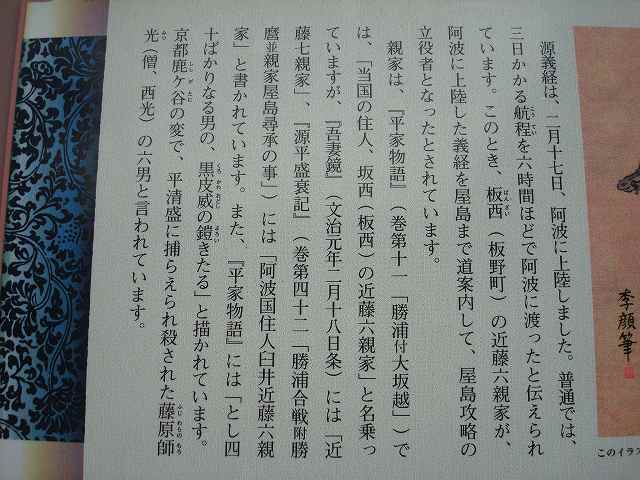 源義経は、二月十七日、阿波に上陸しました。普通では、
三日かかる航程を六時間ほどで阿波に渡ったと伝えられ
ています。このとき、板西（板野町）の近藤六親家が、
阿波に上陸した義経を屋島まで道案内して、屋島攻略の
立役者となったとされています。
親家は、『平家物語』（巻第十一「勝浦付大坂越」）で
は、「当国の住人、坂西（板西）の近藤六親家」と名乗っ
ていますが、『吾妻鏡』（文治元年二月十八日条）には「近
藤七親家」、『源平盛衰記』（巻第四十二「勝浦合戦附勝
磨並親家屋島尋承の事」）には「阿波国住人臼井近藤六親
家」と書かれています。また、『平家物語』には「とし四
十ばかりなる男の、黒皮威の鎧きたる」と描かれています。
京都鹿ケ谷の変で、平清盛に捕らえられ殺された藤原師
光（僧、西光）の六男と言われています。
李顔筆
このイラス